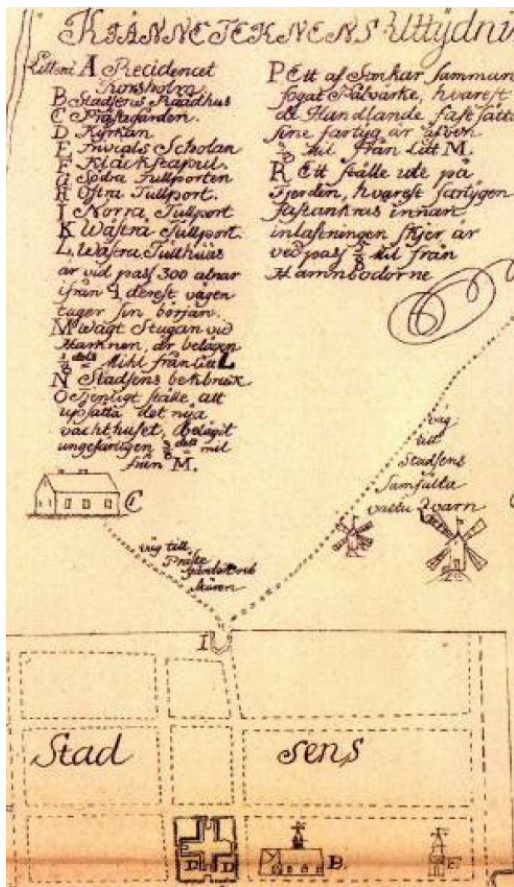 KIÄNNETEKNENS Uttÿdni
Litt: A Recidencet
Kronsholm.
B Stadsens Raadhus
C Prästegården.
D Kÿrkan
E Trivials Scholan
F Klåckstapul.
G Södra Tullporten
H Östra Tullport.
I Norra Tullport
K Wästra Tullport.
L, Wästra Tullhuus
är vid pass 300 alnar
ifrån 4 derest vägen
tager sin början.
M Wagt Stugan vid
Hamnen, är belägen
1/8 dels Mihl från Litt L
N Stadsens bekbruk
O Tienligt ställe, att
upsätta det nÿa
vachthuset, belägit
ungefärligen dels mil
från M.
P Ett af Stockar samman
fogat Pålvärke, hvarest
de Handlande fast sätta
sine fartyg är äfven
mil från Litt M.
R Ett ställe ute på
Fjerden, hvarest fartÿgen
fastankras innan
inlastningen skjer är
ved pass mil från
Hamnbodorne
väg
till
Stadsens
Samfälta
vattu Qvarn
C
väg till
Präste
gården och
skären
I
Stad sens
D D B. F